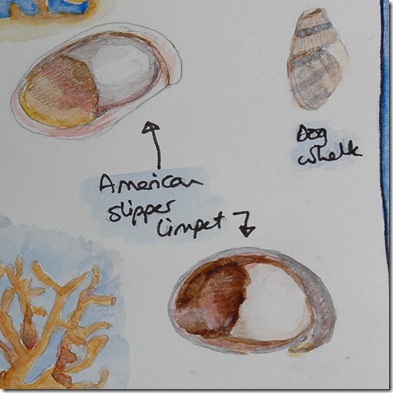 American
slipper
limpet
Dog
whelk